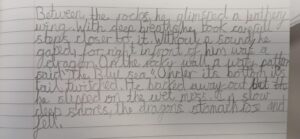 Between the rocks, he glimpsed a feathery
wing. With deep breaths, he took careful
steps closer to it. Without a sound he
gaped, for right in front of him was a
dragon. On the rocky wall, a wavy pattern
said "The Blue sea." Under its bottom its
tail twitched. He backed away but
he slipped on the wet moss. In slow
deep snores, the dragons stomach rose and
fell.